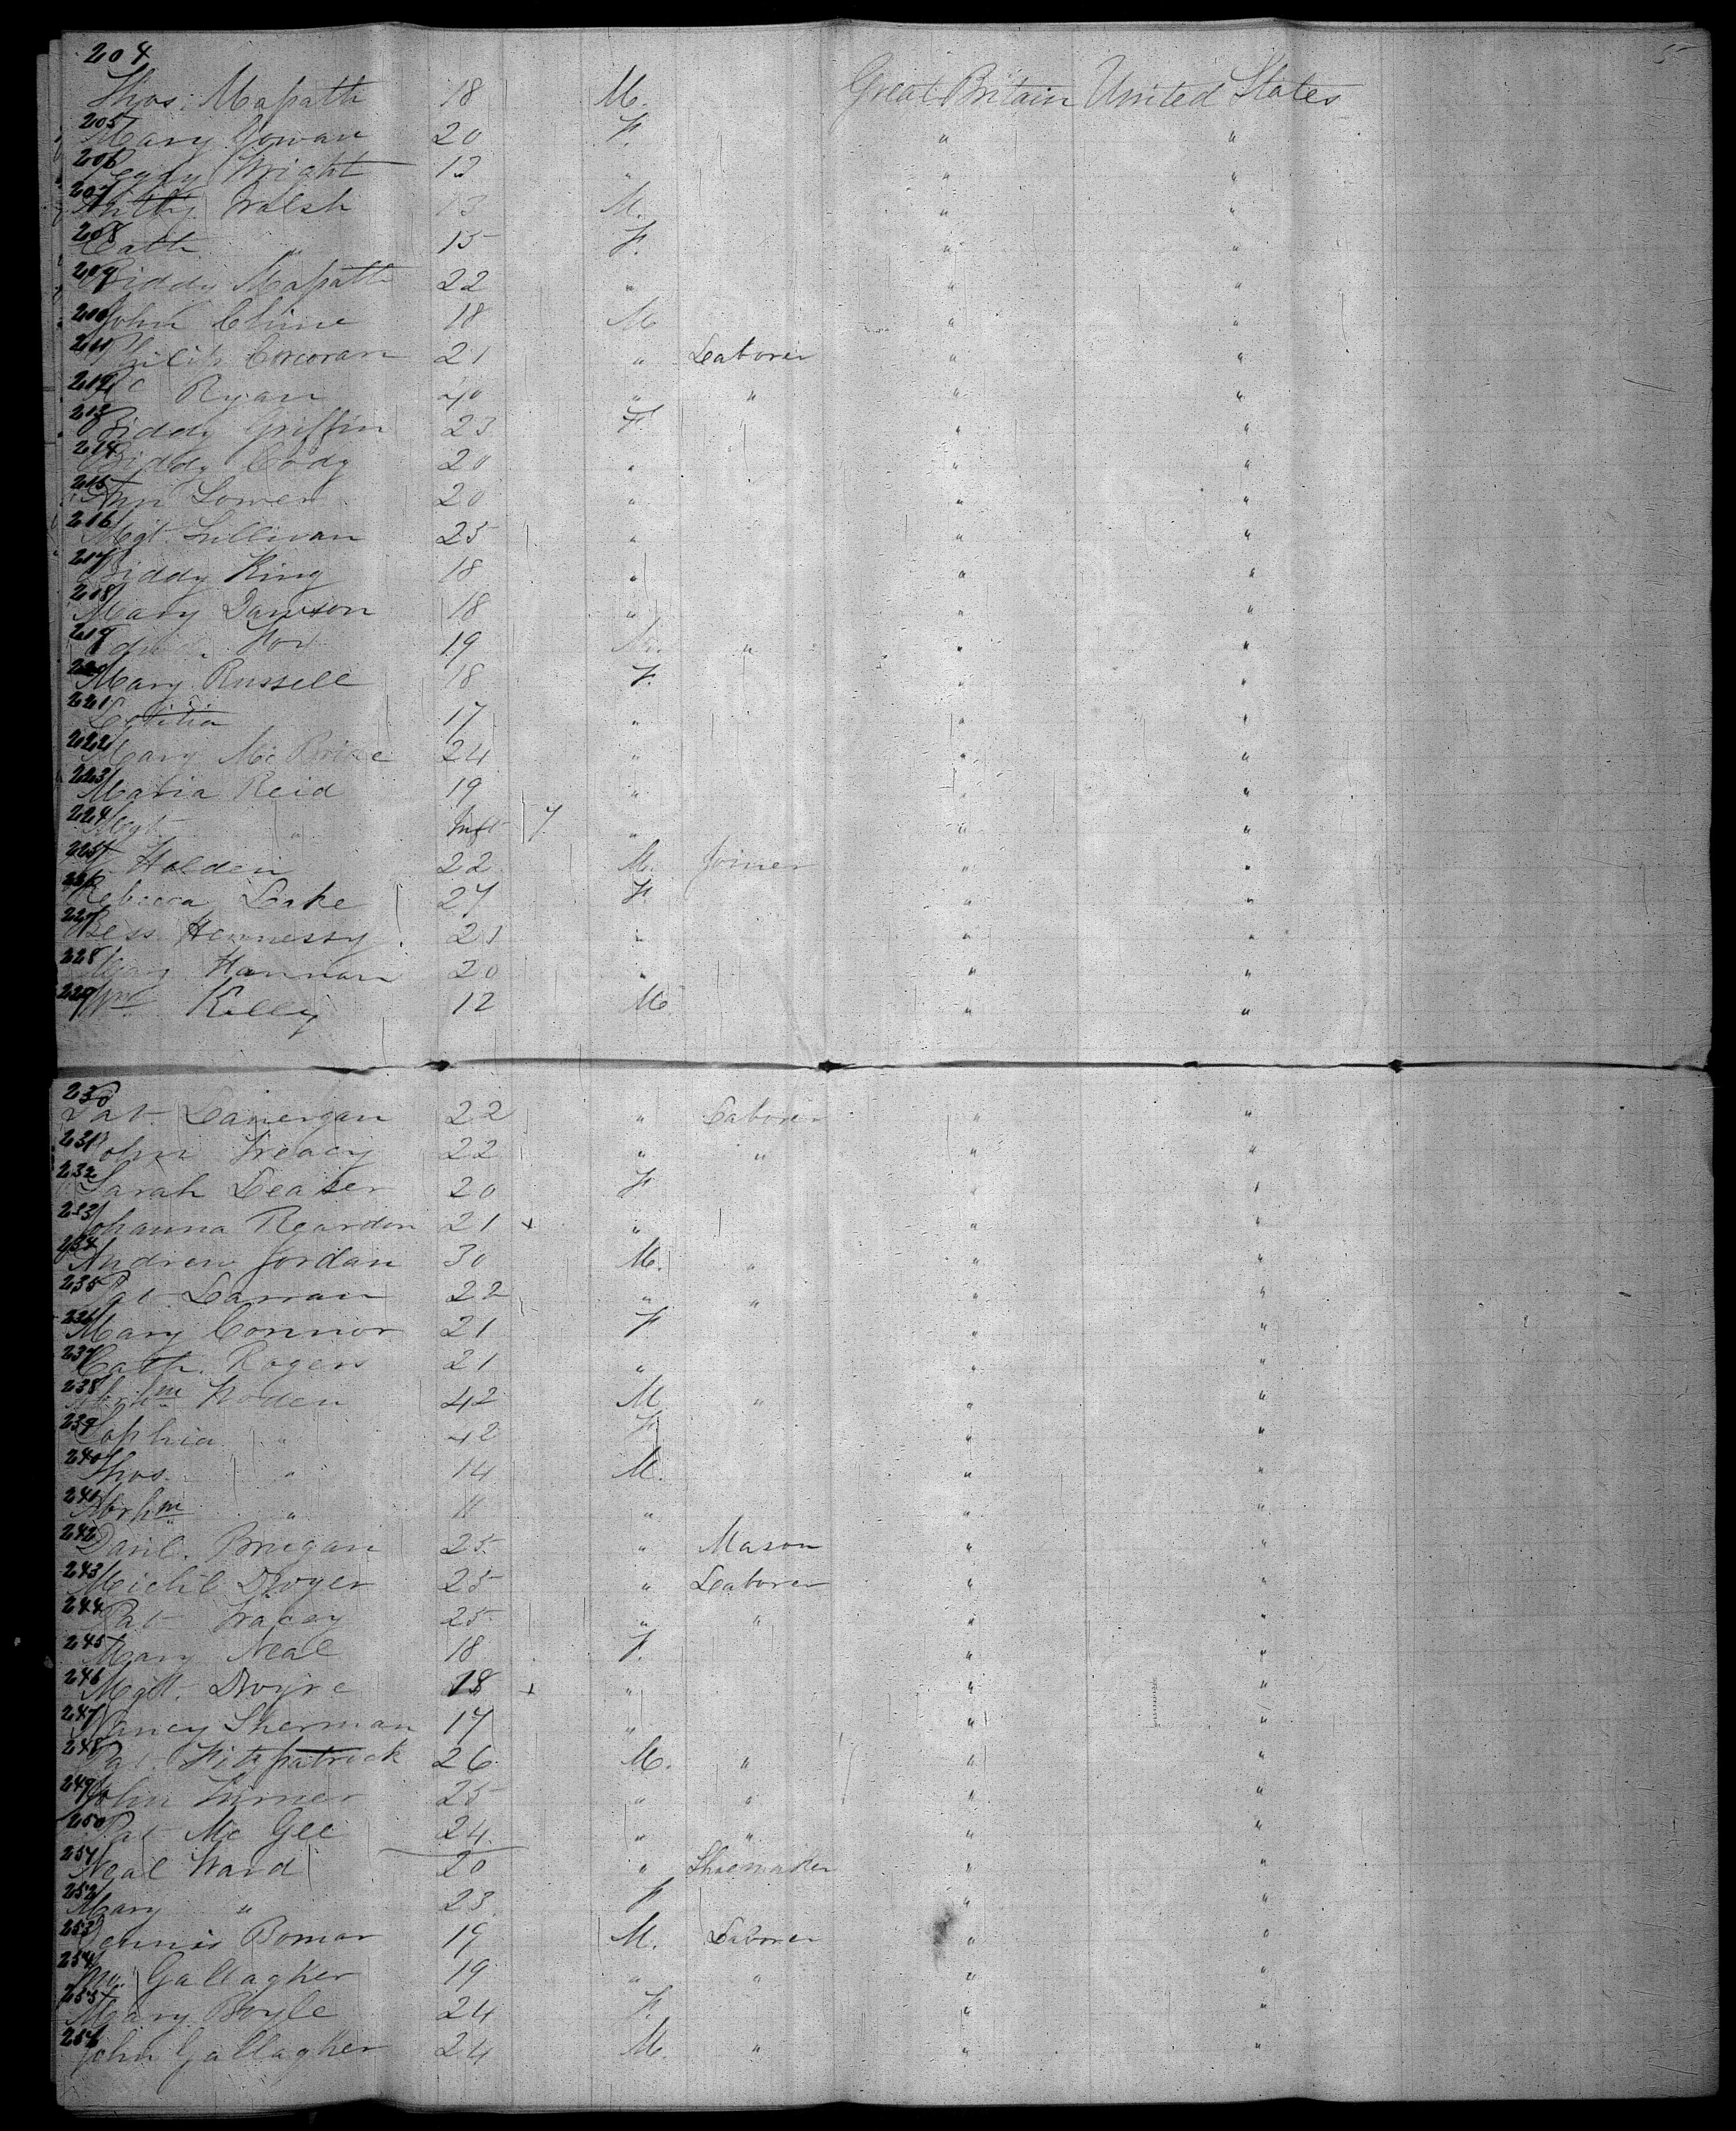 204
Thos. Mapath 18 M. Great Britain United States
205 Mary Gowan 20 F. " "
206 Peggy Wright 13 " " "
207 Walsh 13 M. " "
208 Cath " 15 F. " "
209 Biddy Mapath 22 " " "
200 John Cline 18 M " "
211 Philip Corcoran 21 " Laborer " "
212 Ryan 40 " " " "
213 Biddy Griffin 23 F. " " "
214 Biddy Cody 20 " " "
215 Ann 20 " " "
216 Mgt. Sullivan 25 " " "
217 Biddy King 18 " " "
218 Mary Dawson 18 " " "
219 19 M. " " "
220 Mary Russell 18 F. " "
221 Letitia 17 " " "
222 Mary Mc 24 " " "
223 Maria Reid 19 " " "
224 Mgt. " Inft 7 " " "
225 Holden 22 M. Joiner " "
226 Rebecca Lake 27 F. " "
227 Bess Hennessy 21 " " "
228 Mary Hannan 20 " " "
229 Wm Kelly 12 M " "
230 Pat. Lanergan 22 " Laborer " "
231 John Treacy 22 " " " "
232 Sarah 20 F " "
233 Johanna Reardon 21 x " " "
234 Andrew Jordan 30 M. " " "
235 Pat. Larran 22 " " " "
236 Mary Connor 21 F " "
237 Cath. Rogers 21 " " "
238 Abrhm Woden 42 M " " "
239 Sophia " 42 F. " "
240 Thos. " 14 M. " "
241 Abrhm " 11 " " "
242 Danl. Brugan 25 " Mason " "
243 Michl Dwyer 25 " Laborer " "
244 Pat Tracey 25 " " " "
245 Mary Neal 18 F. " "
246 Mgt. Dwyre 18 x " " "
247 Nancy Sherman 17 " " "
248 Pat. Fitzpatrick 26 M. " " "
249 John Turner 25 " " " "
250 Pat Mc Gee 24 " " " "
251 Neal Ward 20 " Shoemaker " "
252 Mary " 23 F " "
253 Dennis Bomar 19 M. Laborer " "
254 Gallagher 19 " " " "
255 Mary Boyle 24 F. " "
256 John Gallagher 24 M. " " "